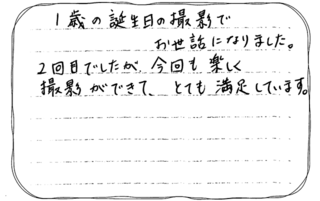 1歳の誕生日の撮影で
お世話になりました。
2回目でしたが、今回も楽しく
撮影ができて、とても満足しています。